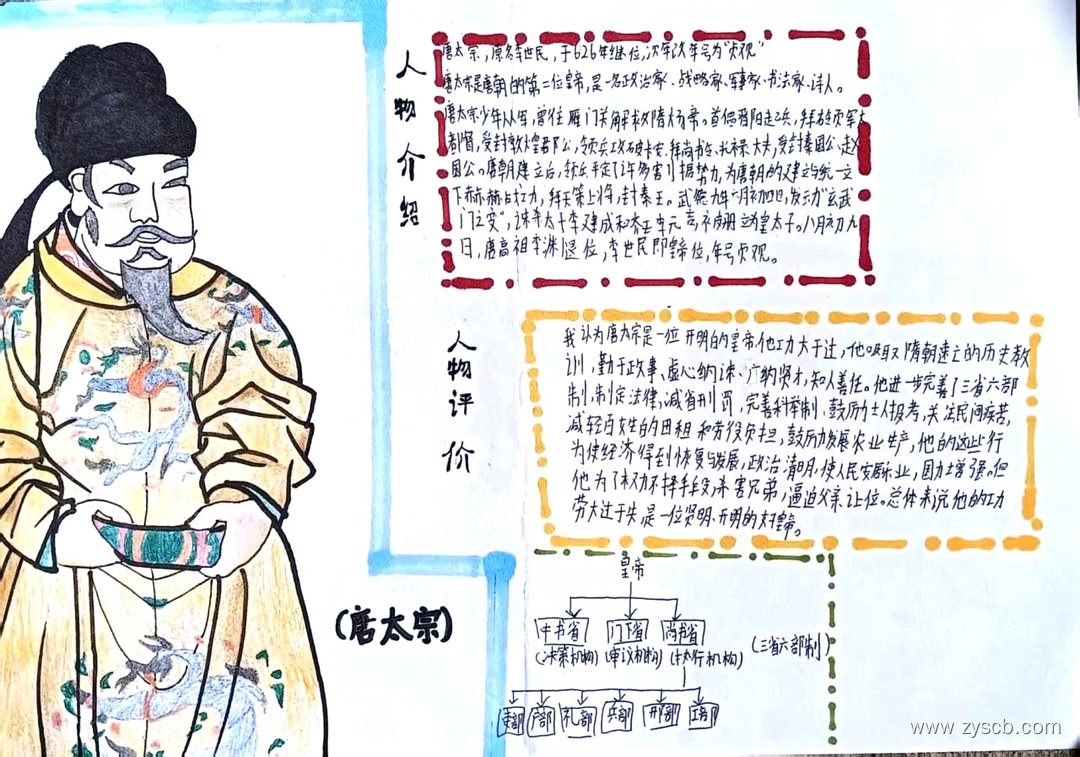 人物介绍
唐太宗，原名李世民，于626年继位，次年改年号为“贞观”
唐太宗是唐朝的第二位皇帝，是一名政治家、战略家、军事家、书法家、诗人。
唐太宗少年从军，曾往雁门关解救隋炀帝。首倡晋阳起兵，拜右领军大
都督，受封敦煌郡公，领兵攻破长安，拜尚书令、光禄大夫，受封秦国公、赵
国公。唐朝建立后，领兵平定了许多割据势力，为唐朝的建立与统一立
下赫赫战功，拜天策上将，封秦王。武德九年六月初四，发动“玄武
门之变”，诛杀太子李建成和齐王李元吉，被册立为皇太子。八月初九
日，唐高祖李渊退位，李世民即皇帝位，年号贞观。
人物评价
我认为唐太宗是一位开明的皇帝他功大于过，他吸取隋朝速亡的历史教
训，勤于政事、虚心纳谏、广纳贤才，知人善任。他进一步完善了三省六部
制，制定法律，减省刑罚，完善科举制，鼓励士人报考，关注民间疾苦，
减轻百姓的田租和劳役负担，鼓励发展农业生产，他的这些行
为使经济得到恢复与发展，政治清明，使人民安居乐业，国力增强。但
他为了权力不择手段，杀害兄弟，逼迫父亲让位。总体来说他的功
劳大过于失，是一位贤明、开明的好皇帝。
(唐太宗)
皇帝
中书省 门下省 尚书省
(决策机构) (审议机构) (执行机构)
(三省六部制)
吏部 户部 礼部 兵部 刑部 工部
www.zyscb.com